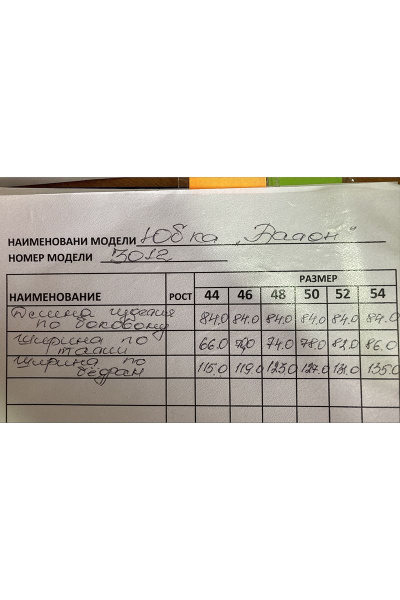 НАИМЕНОВАНИ МОДЕЛИ Юбка „Валон"
НОМЕР МОДЕЛИ 3012
РАЗМЕР
НАИМЕНОВАНИЕ РОСТ 44 46 48 50 52 54
Длина изделия
по боковому 84.0 84.0 84.0 84.0 84.0 84.0
Ширина по
талии 66.0 70.0 74.0 78.0 82.0 86.0
Ширина по
бедрам 115.0 119.0 123.0 127.0 131.0 135.0